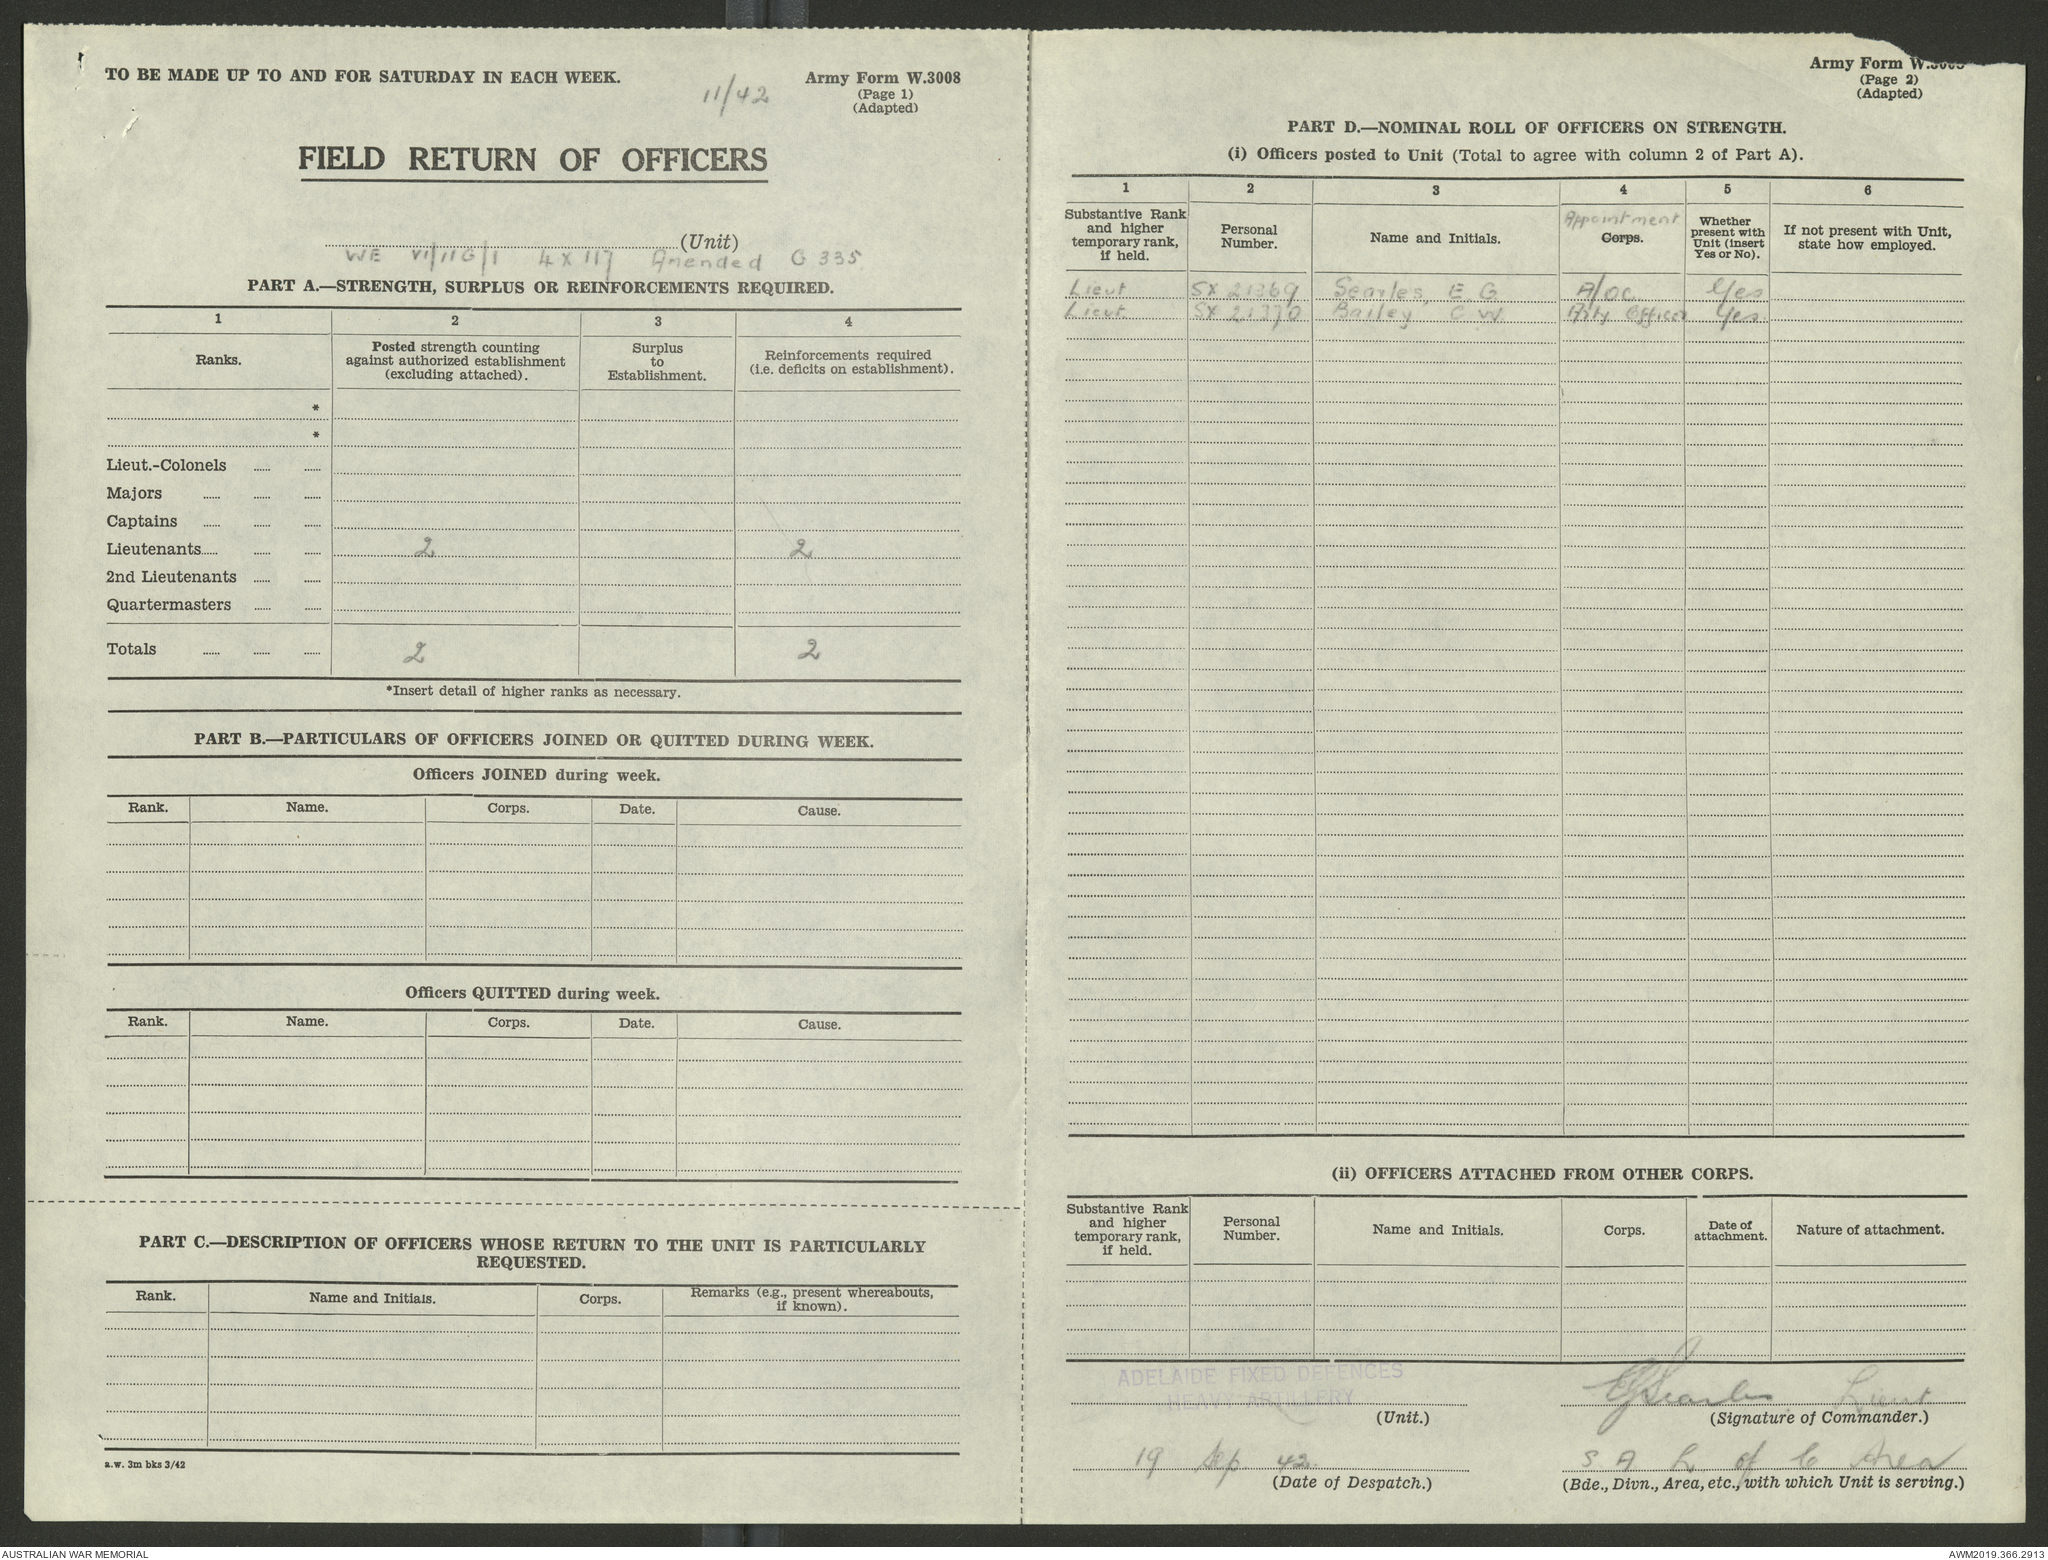 TO BE MADE UP TO AND FOR SATURDAY IN EACH WEEK.
11/42
Army Form W.3008
(Page 1)
(Adapted)
FIELD RETURN OF OFFICERS
(Unit)
WE VI/11G/1 4 X 117 Amended G 335
PART A.—STRENGTH, SURPLUS OR REINFORCEMENTS REQUIRED.
1 2 3 4
Ranks.
Posted strength counting against authorized establishment (excluding attached).
Surplus to Establishment.
Reinforcements required (i.e. deficits on establishment).
*
*
Lieut.-Colonels
Majors
Captains
Lieutenants 2 2
2nd Lieutenants
Quartermasters
Totals 2 2
*Insert detail of higher ranks as necessary.
PART B.—PARTICULARS OF OFFICERS JOINED OR QUITTED DURING WEEK.
Officers JOINED during week.
Rank. Name. Corps. Date. Cause.
Officers QUITTED during week.
Rank. Name. Corps. Date. Cause.
PART C.—DESCRIPTION OF OFFICERS WHOSE RETURN TO THE UNIT IS PARTICULARLY
REQUESTED.
Rank. Name and Initials. Corps. Remarks (e.g., present whereabouts, if known).
a.w. 3m bks 3/42
Army Form W.3008
(Page 2)
(Adapted)
PART D.—NOMINAL ROLL OF OFFICERS ON STRENGTH.
(i) Officers posted to Unit (Total to agree with column 2 of Part A).
1 2 3 4 5 6
Substantive Rank and higher temporary rank, if held.
Personal Number.
Name and Initials.
Appointment
Corps.
Whether present with Unit (insert Yes or No).
If not present with Unit, state how employed.
Lieut SX 21369 Searles, E G A/OC Yes
Lieut. SX 21370 Bailey C W Arty Officer Yes
(ii) OFFICERS ATTACHED FROM OTHER CORPS.
Substantive Rank and higher temporary rank, if held.
Personal Number.
Name and Initials.
Corps.
Date of attachment.
Nature of attachment.
ADELAIDE FIXED DEFENCES
HEAVY ARTILLERY
(Unit.)
EGSearles Lieut
(Signature of Commander.)
19 Sep 42
(Date of Despatch.)
S A L of C Area
(Bde., Divn., Area, etc., with which Unit is serving.)
AUSTRALIAN WAR MEMORIAL
AWM2019.366.2913